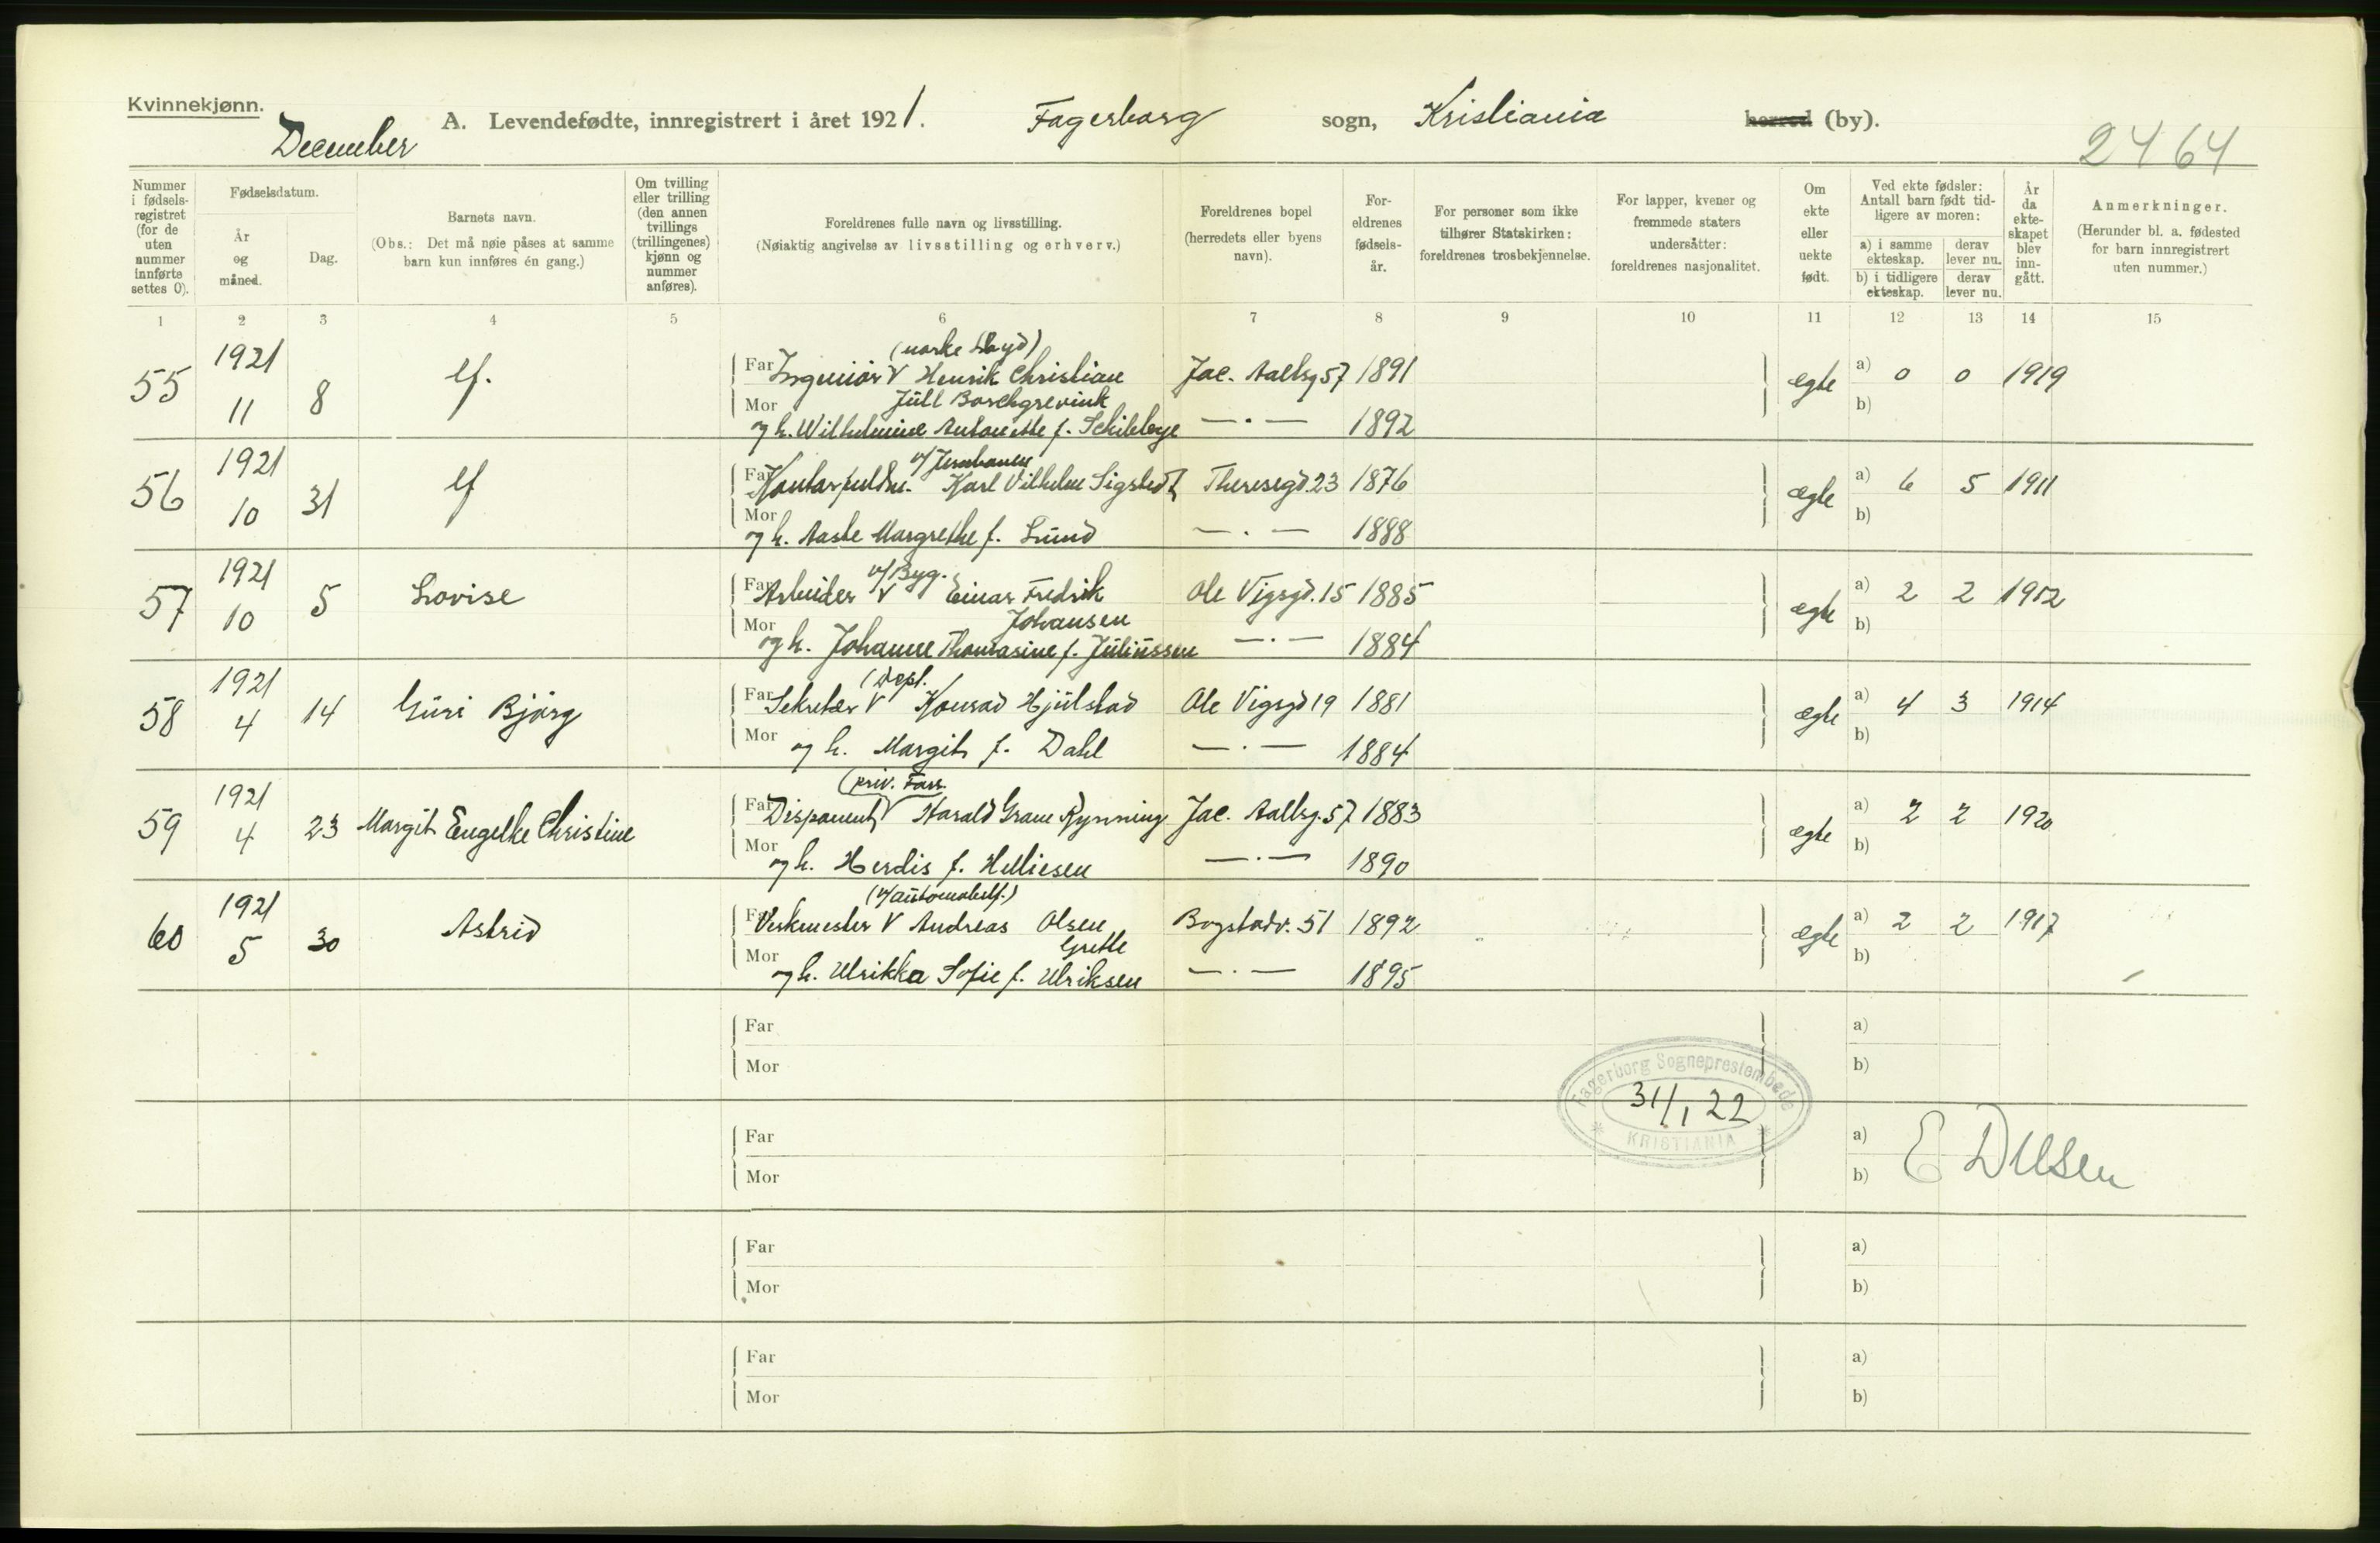 Kvinnekjønn.
December
A. Levendefødte, innregistrert i året 1921. Fagerborg sogn, Kristiania herred (by).
2464
Nummer i fødselsregistret (for de uten nummer innførte settes 0).
Fødselsdatum.
År og måned.
Dag.
Barnets navn.
(Obs.: Det må nøie påses at samme barn kun innføres én gang.)
Om tvilling eller trilling (den annen tvillings (trillingenes) kjønn og nummer anføres).
Foreldrenes fulle navn og livsstilling.
(Nøiaktig angivelse av livsstilling og erhverv.)
Foreldrenes bopel (herredets eller byens navn).
Foreldrenes fødselsår.
For personer som ikke tilhører Statskirken: foreldrenes trosbekjennelse.
For lapper, kvener og fremmede staters undersåtter: foreldrenes nasjonalitet.
Om ekte eller uekte født.
Ved ekte fødsler: Antall barn født tidligere av moren:
a) i samme ekteskap.
derav lever nu.
b) i tidligere ekteskap.
derav lever nu.
År da ekteskapet blev inngått.
Anmerkninger.
(Herunder bl. a. fødested for barn innregistrert uten nummer.)
1 2 3 4 5 6 7 8 9 10 11 12 13 14 15
(norske Lloyd)
55 1921 11 8 lf. Far Ingeniør V Henrik Christian Jac. Aallsg 57 1891 ægte a) 0 0 1919
Jull Borchgrevink
Mor og h. Wilhelmine Antonette f. Schibbye —·— 1892 b)
v/Jernbanen
56 1921 10 31 lf Far Karl Vilhelm Sigstedt Theresegd. 23 1876 ægte a) 6 5 1911
Mor og h. Aaste Margrethe f. Lund —·— 1888 b)
v/Byg.
57 1921 10 5 Lovise Far Arbeider V Einar Fredrik Ole Vigsgd. 15 1885 ægte a) 2 2 1912
Johansen
Mor og h. Johanne Thomasine f. Juliussen —·— 1884 b)
(Dept.
58 1921 4 14 Guri Bjørg Far Sekretær V Konrad Hjulstad Ole Vigsgd 19 1881 ægte a) 4 3 1914
Mor og h. Margit f. Dahl —·— 1884 b)
(priv. Forr.
59 1921 4 23 Margit Engelke Christine Far Disponent V Harald Gram Rynning Jac. Aallsg. 57 1883 ægte a) 2 2 1920
Mor og h. Herdis f. Helliesen —·— 1890 b)
(v/automobilf.)
60 1921 5 30 Astrid Far Verkmester V Andreas Olsen Bogstadv. 51 1892 ægte a) 2 2 1917
Grette
Mor og h. Ulrikka Sofie f. Ulriksen —·— 1895 b)
Far a)
Mor b)
Fagerborg Sogneprestembede
31/1 22
KRISTIANIA
Far a)
Mor b)
Far a)
Mor b)
Far a)
Mor b)